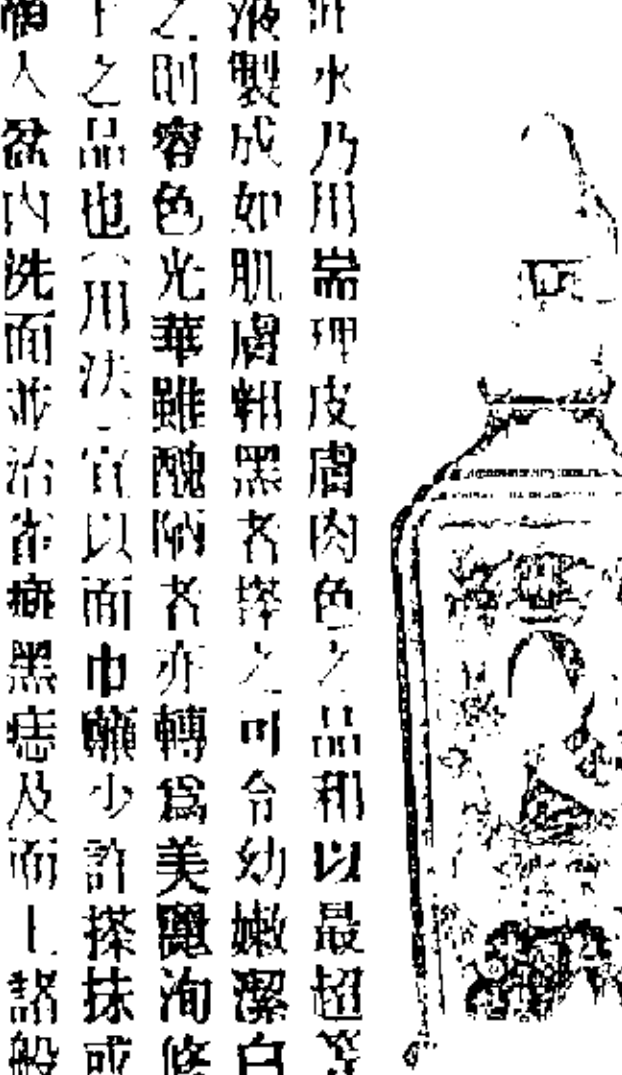 水乃用耑理皮膚肉色之品和以最超等
液製成如肌膚粗黑者搽之可令幼嫩潔白
之則容色光華雖醜陋者亦轉爲美麗洵修
之品也（用法）宜以面巾蘸少許搽抹或
入盆內洗面並治雀癍黑痣及面上諸般